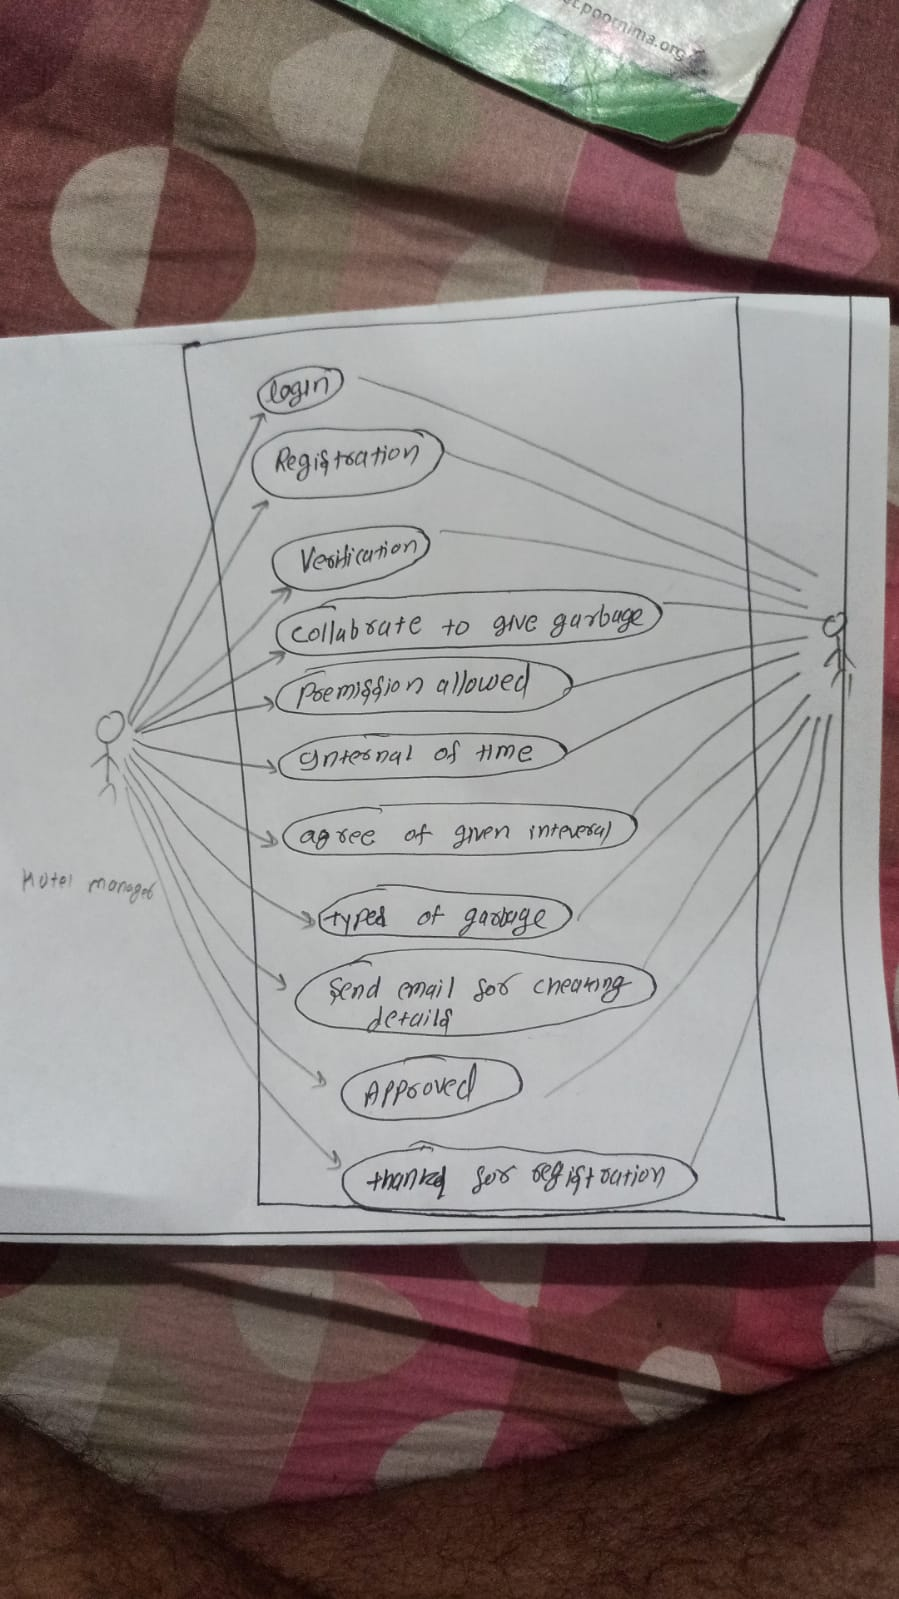 poornima.org
login
Registration
Verification
collabrate to give garbage
Premission allowed
Internal of time
agree of given inteveral
Hotel manager
types of garbage
Send email for cheaking
details
Approved
thanks for registration